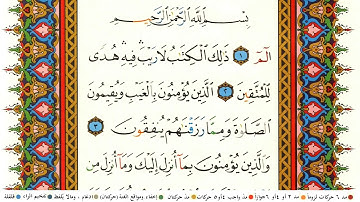 بِسْمِ ٱللَّهِ ٱلرَّحْمَٰنِ ٱلرَّحِيمِ
الٓمٓ ١ ذَٰلِكَ ٱلْكِتَٰبُ لَا رَيْبَ ۛ فِيهِ ۛ هُدًى
لِّلْمُتَّقِينَ ٢ ٱلَّذِينَ يُؤْمِنُونَ بِٱلْغَيْبِ وَيُقِيمُونَ
ٱلصَّلَوٰةَ وَمِمَّا رَزَقْنَٰهُمْ يُنفِقُونَ ٣
وَٱلَّذِينَ يُؤْمِنُونَ بِمَآ أُنزِلَ إِلَيْكَ وَمَآ أُنزِلَ مِن
مد ٦ حركات لزوما مد ٢ أو ٤ أو ٦ جوازا مد واجب ٤ أو ٥ حركات مد حركتان إخفاء، ومواقع الغنة (حركتان) إدغام، وما لا يلفظ تفخيم الراء قلقلة